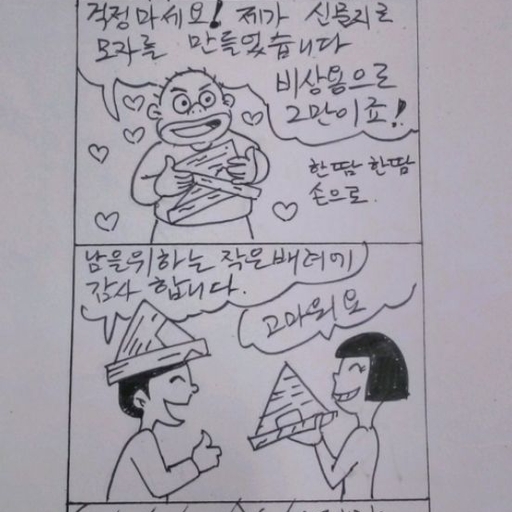 걱정마세요! 제가 신문지로
모자를 만들었습니다
비상용으로
그만이죠!
한땀 한땀
손으로.
남을위하는 작은배려에
감사 합니다.
고마워요